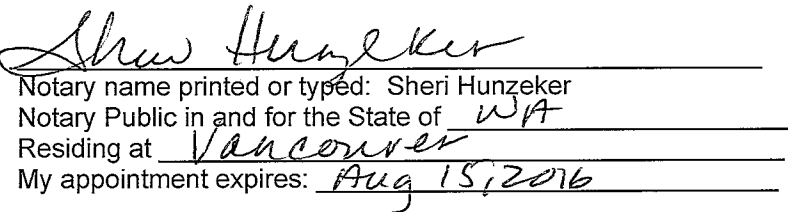 Sheri Hunzeker
Notary name printed or typed: Sheri Hunzeker
Notary Public in and for the State of WA
Residing at Vancouver
My appointment expires: Aug 15, 2016